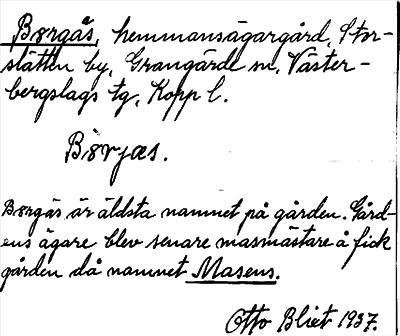 Børgås, hemmansägargård, Stor-
slätten by, Grangärde sn, Väster-
bergslags tg, Kopp l.
Børjas.
Børgäs är äldsta namnet på gården. Gård-
ens ägare blev senare masmästare å fick
gården då namnet Masens.
Otto Blixt 1937.